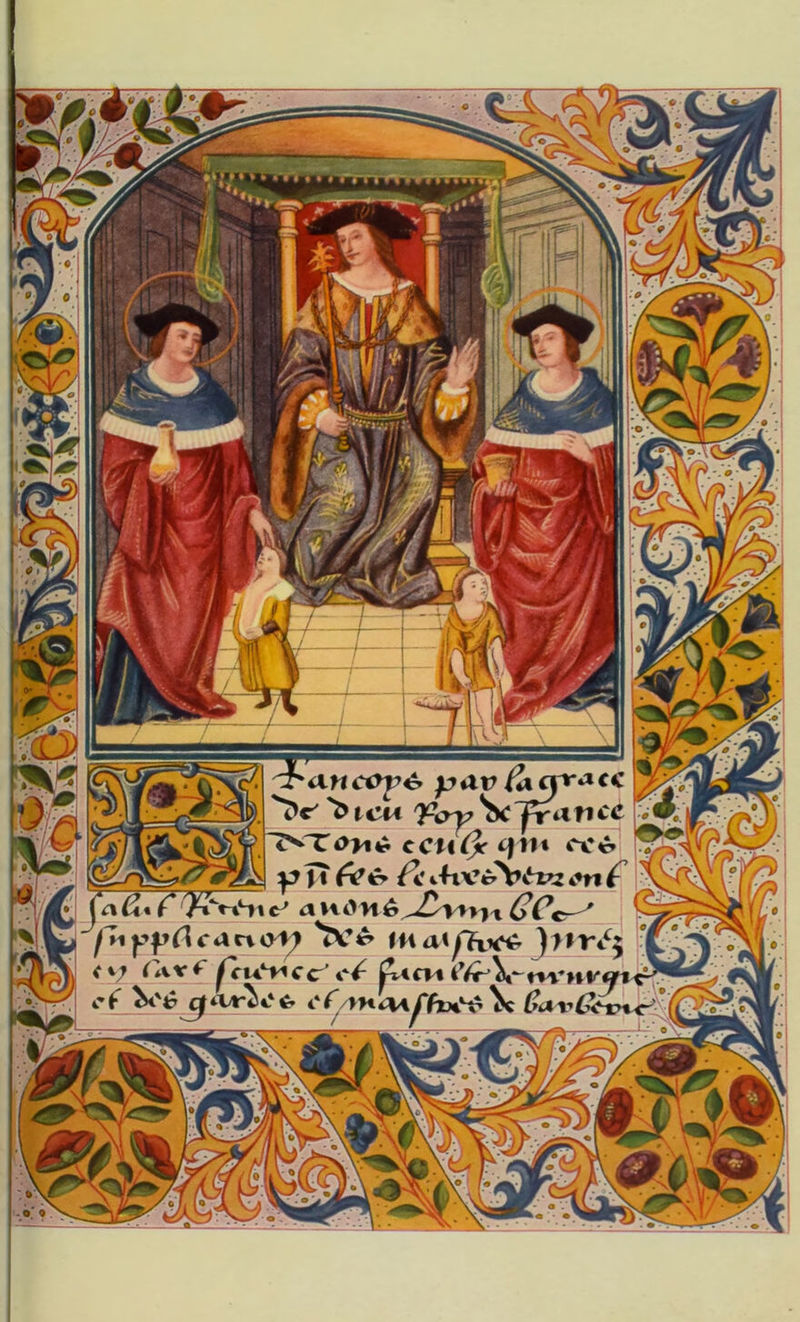 Francoys par la grace
de dieu Roy de france
A Tous ceulx qui ces
pñtes lectres verront
salut Receue auons Lhumble
supplicacion des maistres Jurez
en lart science et faculte de cirurgie
et des gardes et maistres de barberie